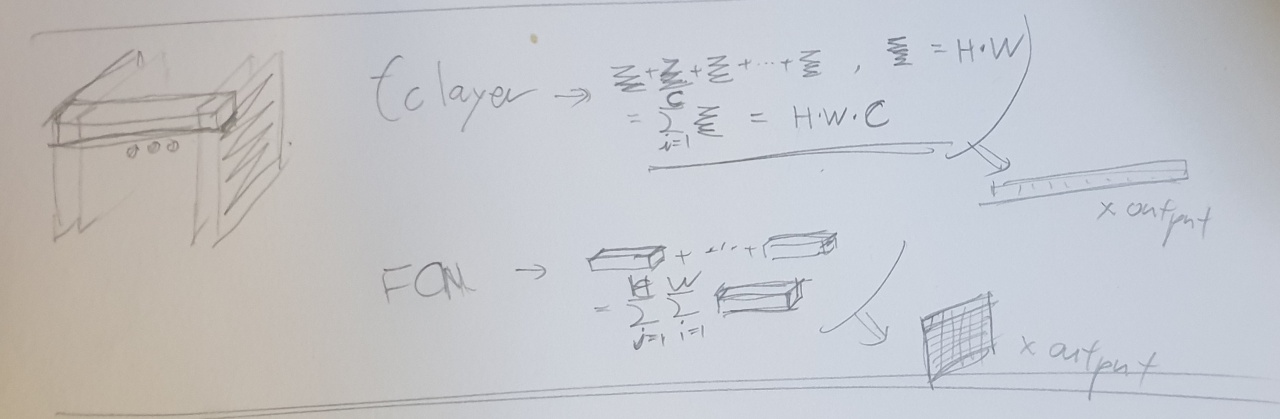 fc layer → Ξ + Ξ + Ξ + ... + Ξ , Ξ = H·W
= Σ_{i=1}^{C} Ξ = H·W·C
x output
FCN → + ... +
= Σ_{j=1}^{H} Σ_{i=1}^{W}
x output